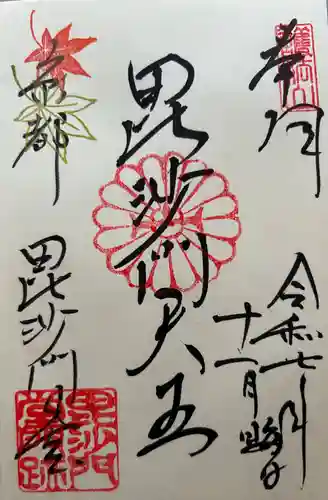 奉拝
令和七年
十一月晦日
毘沙門天王
京都
毘沙門堂
毘沙門
堂門跡